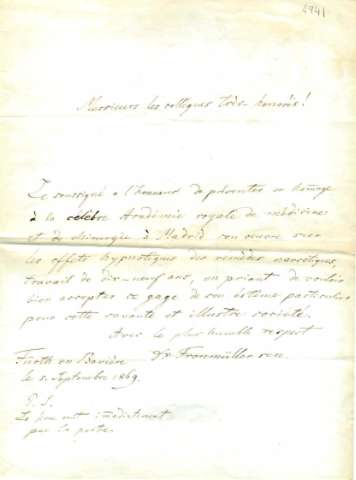 4941
Messieurs les collègues très-honorés!
Le soussigné a l'honneur de présenter en homage
à la celèbre Académie royale de médicine
et de chirurgie à Madrid son œuvre sur
les effets hypnotiques des remèdes narcotiques,
travail de dix-neuf ans, en priant de vouloir
bien accepter ce gage de son éstime particulier
pour cette savante et illustre societé.
Avec le plus humble respect
Fürth en Bavière Dr Fronmüller sen.
le 5. Septembre 1869.
P. S.
Le
par la poste.